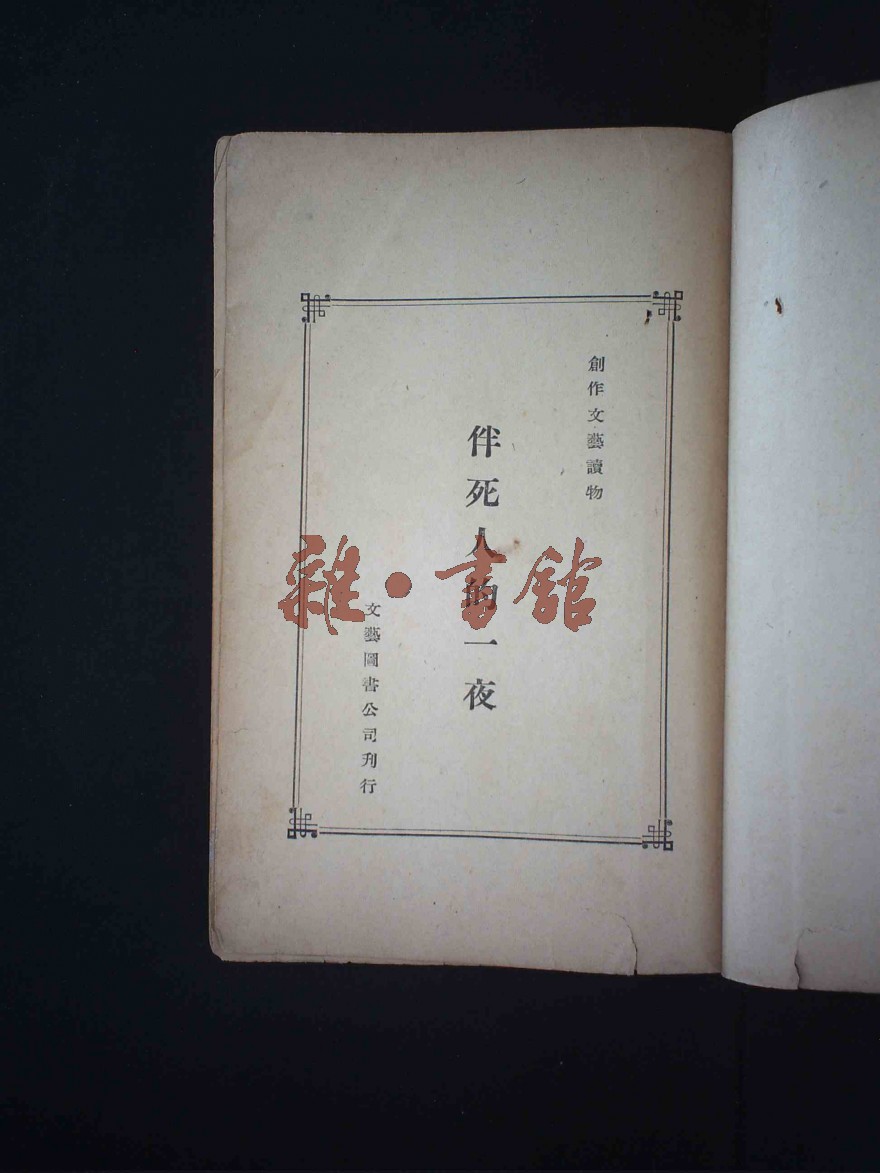 創作文藝讀物
伴死人的一夜
文藝圖書公司刋行
雜·書館